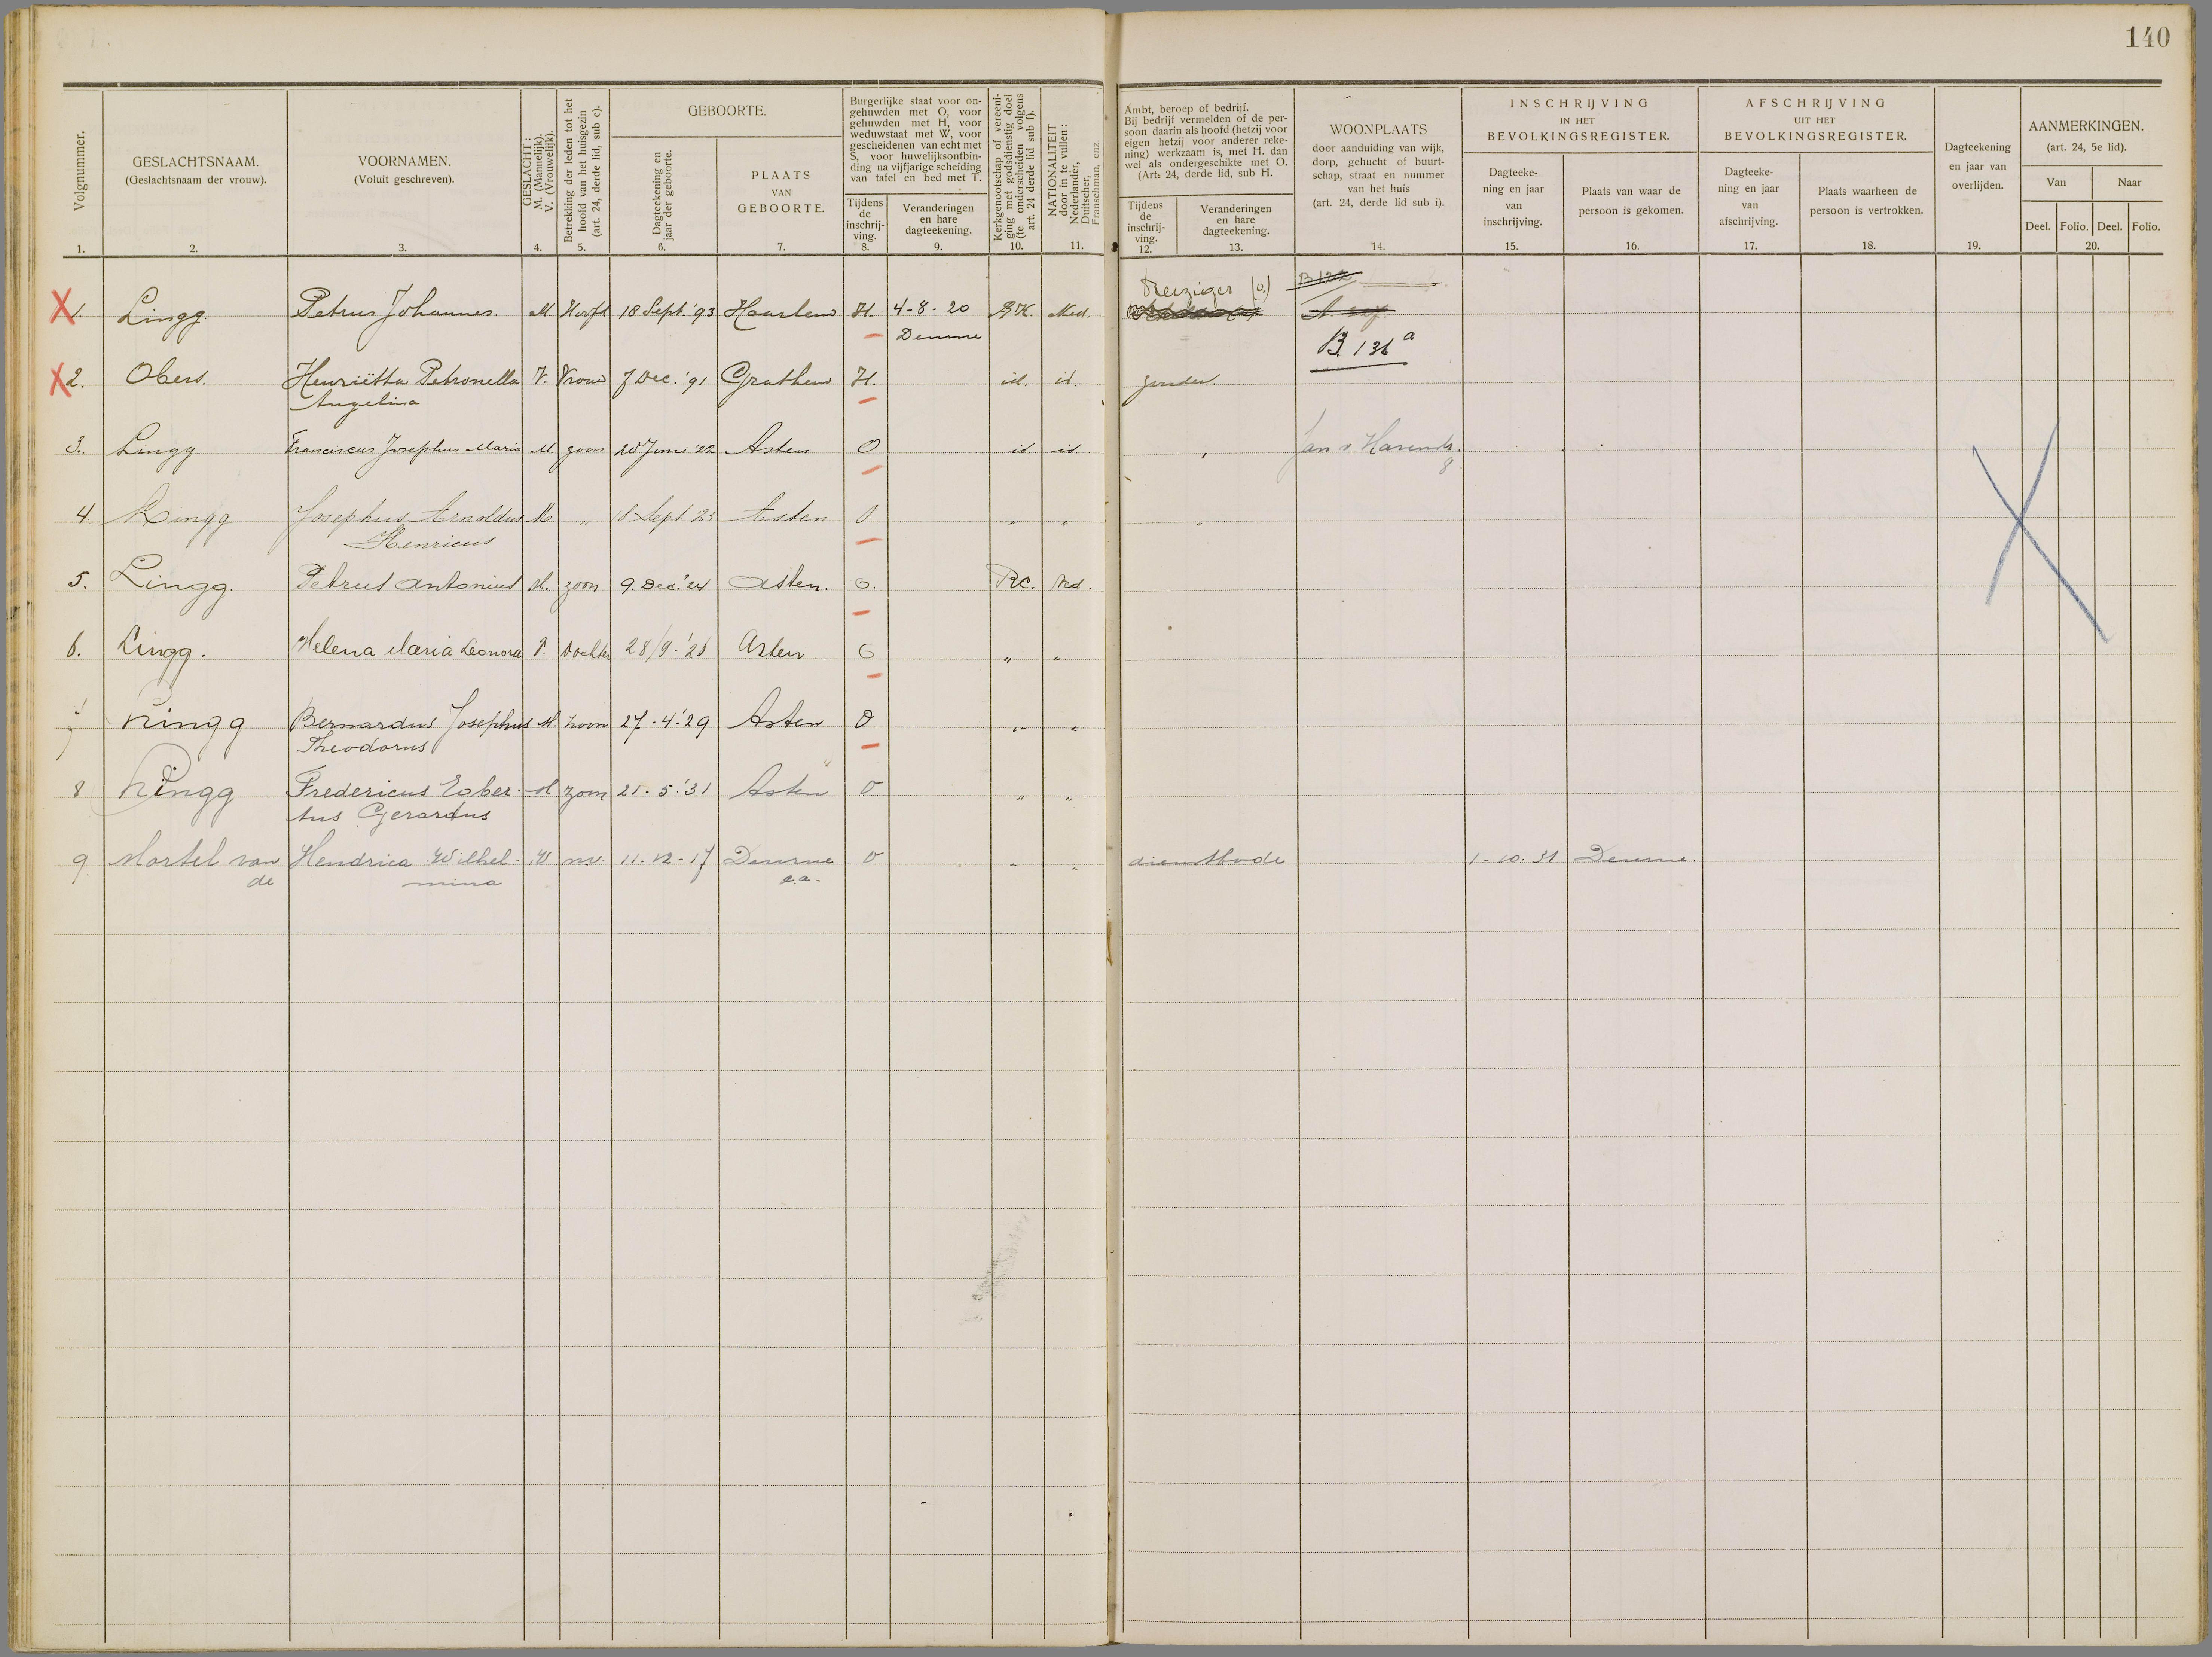 140
Volgnummer.
1.
GESLACHTSNAAM.
(Geslachtsnaam der vrouw).
2.
VOORNAMEN.
(Voluit geschreven).
3.
GESLACHT:
M. (Mannelijk).
V. (Vrouwelijk).
4.
Betrekking der leden tot het
hoofd van het huisgezin
(art. 24, derde lid, sub c).
5.
GEBOORTE.
Dagteekening en
jaar der geboorte.
6.
PLAATS
VAN
GEBOORTE.
7.
Burgerlijke staat voor on-
gehuwden met O, voor
gehuwden met H, voor
weduwstaat met W, voor
gescheidenen van echt met
S, voor huwelijksontbin-
ding na vijfjarige scheiding
van tafel en bed met T.
Tijdens
de
inschrij-
ving.
8.
Veranderingen
en hare
dagteekening.
9.
Kerkgenootschap of vereeni-
ging met godsdienstig doel
(te onderscheiden volgens
art. 24 derde lid sub f).
10.
NATIONALITEIT
door in te vullen:
Nederlander,
Duitscher,
Franschman, enz.
11.
Ambt, beroep of bedrijf.
Bij bedrijf vermelden of de per-
soon daarin als hoofd (hetzij voor
eigen hetzij voor anderer reke-
ning) werkzaam is, met H. dan
wel als ondergeschikte met O.
(Art. 24, derde lid, sub H.
Tijdens
de
inschrij-
ving.
12.
Veranderingen
en hare
dagteekening.
13.
WOONPLAATS
door aanduiding van wijk,
dorp, gehucht of buurt-
schap, straat en nummer
van het huis
(art. 24, derde lid sub i).
14.
INSCHRIJVING
IN HET
BEVOLKINGSREGISTER.
Dagteeke-
ning en jaar
van
inschrijving.
15.
Plaats van waar de
persoon is gekomen.
16.
AFSCHRIJVING
UIT HET
BEVOLKINGSREGISTER.
Dagteeke-
ning en jaar
van
afschrijving.
17.
Plaats waarheen de
persoon is vertrokken.
18.
Dagteekening
en jaar van
overlijden.
19.
AANMERKINGEN.
(art. 24, 5e lid).
Van
Naar
Deel. Folio. Deel. Folio.
20.
1. Lingg. Petrus Johannes. M. Hoofd 18 Sept. '93 Haarlem H. 4-8-20 R.K. Ned. Reiziger (O.)
Deurne
B 136 a
2. Obers. Henriëtta Petronella V. Vrouw 7 Dec. '91 Grathem H. id. id. zonder.
Angelina
3. Lingg Franciscus Josephus Maria M. zoon 20 Juni '22 Asten O. id. id. " Jan v Havenstr.
8
4 Lingg Josephus Arnoldus M " 18 Sept '23 Asten O " " "
Henricus
5. Lingg. Petrus Antonius M. zoon 9. Dec. '24 Asten. O. RC. Ned.
6. Lingg. Helena Maria Leonora V. Dochter 28/9-'26 Asten O " "
7 Lingg Bernardus Josephus M. zoon 27-4-'29 Asten O " "
Theodorus
8 Lingg Fredericus Egber- M zoon 21-5-'31 Asten O " "
tus Gerardus
9. Mortel van Hendrica Wilhel- V nv. 11-12-17 Deurne O " " dienstbode 1-10-31 Deurne.
de mina e.a.